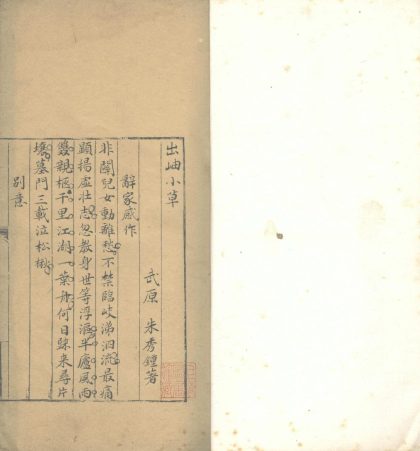 出岫小草
武原 朱秀鍾著
辭家感作
非關兒女動離愁不禁臨岐涕泗流最痛
顯揚虛壯志忽教身世等浮漚半廬風雨
雙親柩千里江湖一葉舟何日歸来尋片
壤墓門三載泣松楸
別意